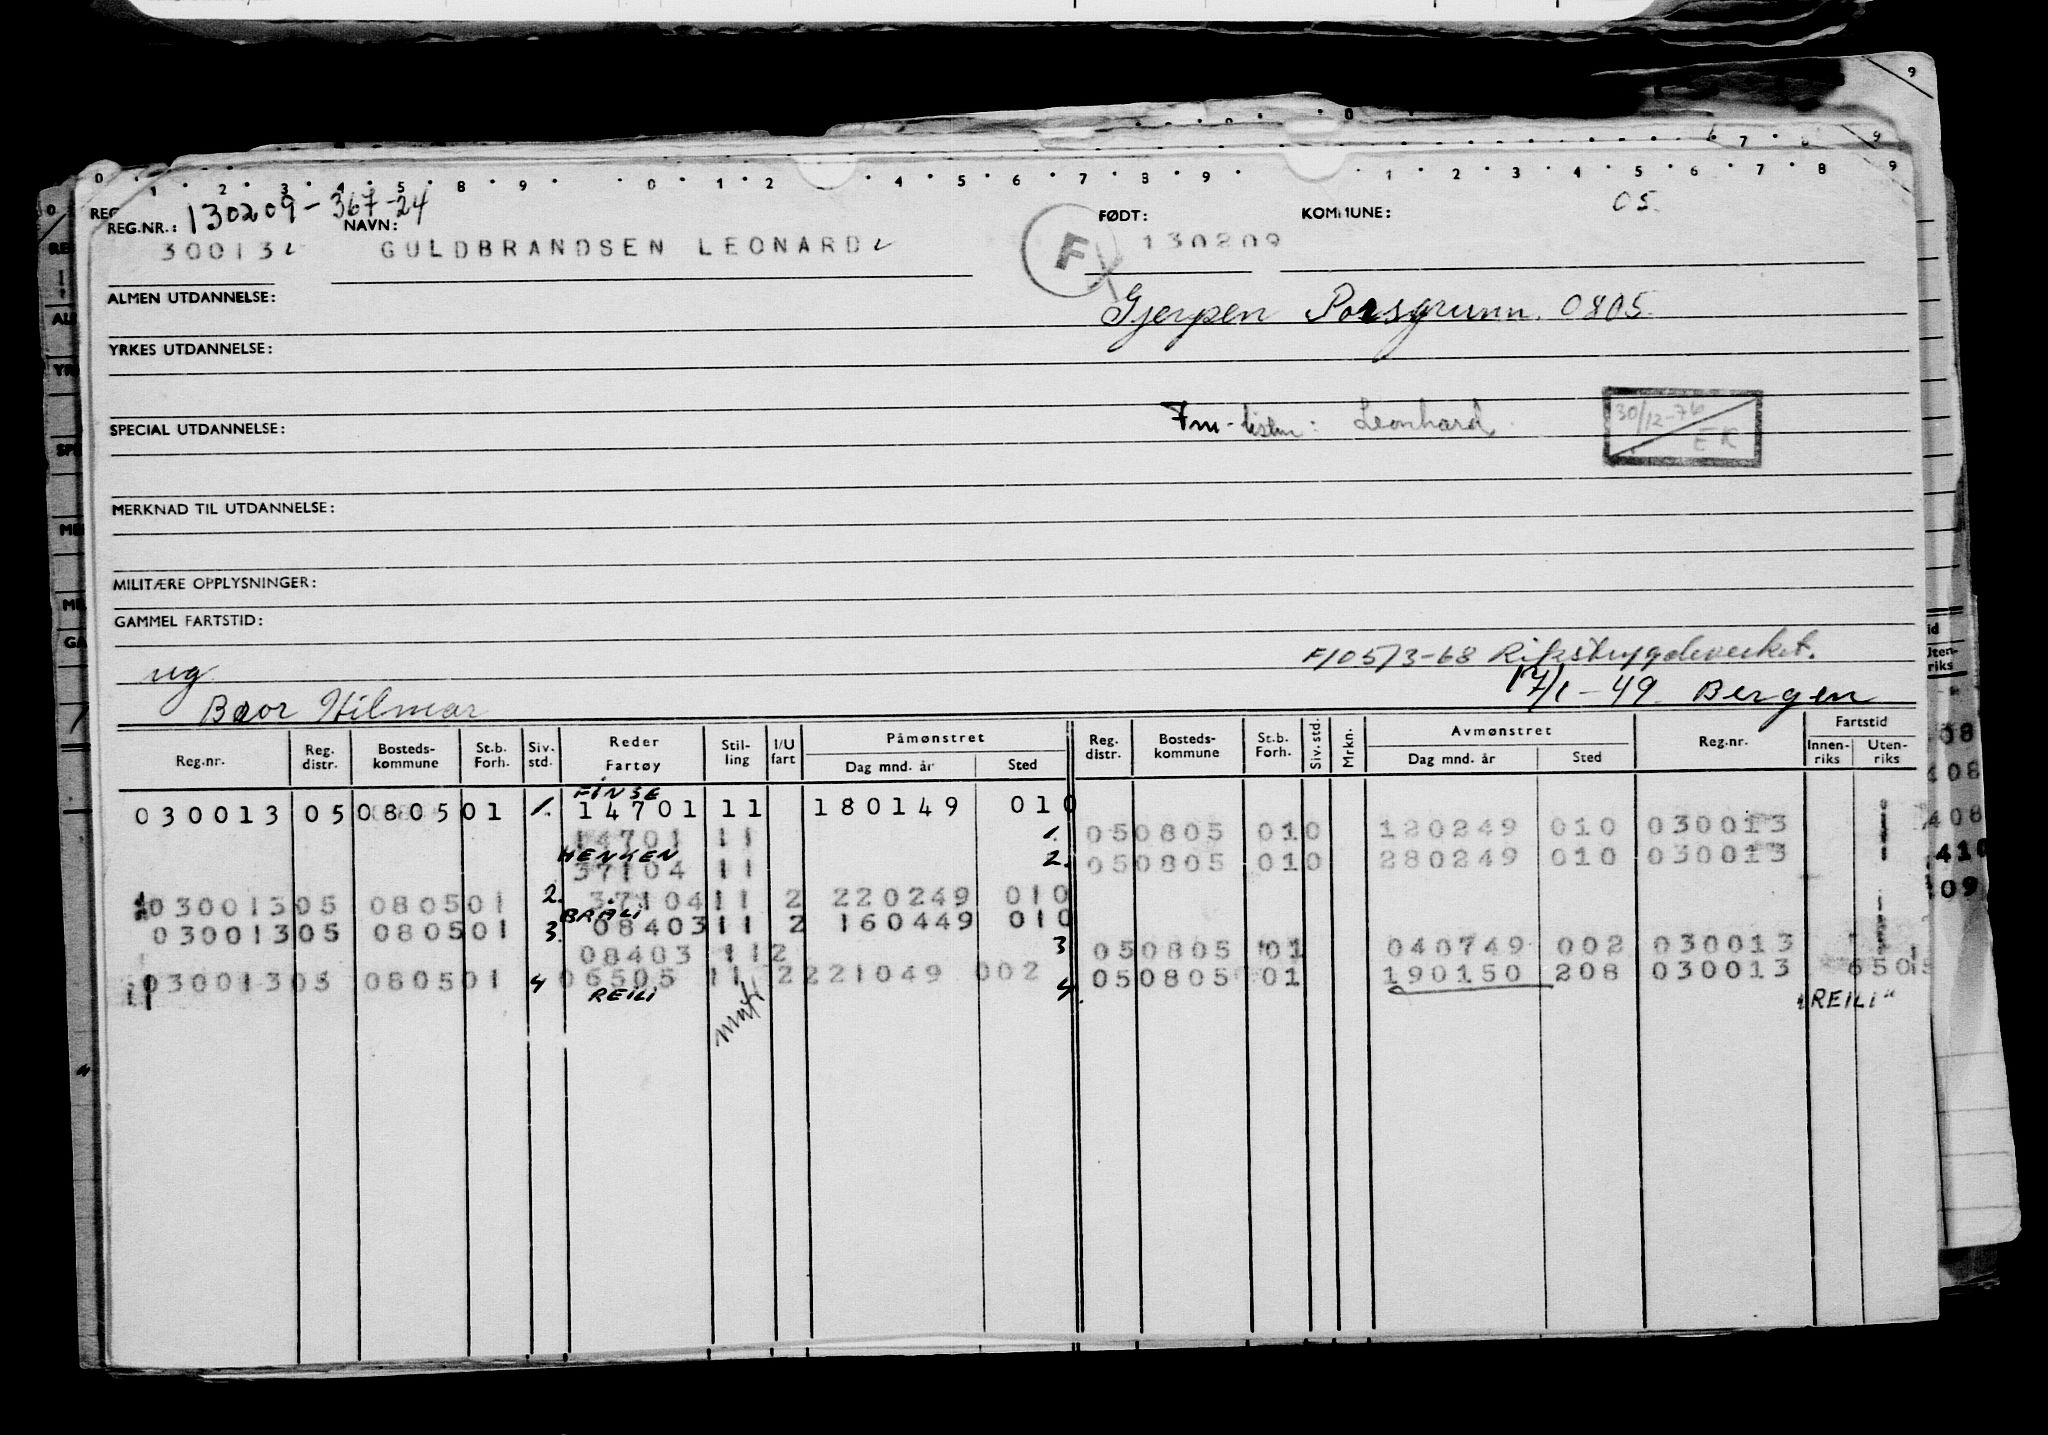 0 . 1 . 2 . 3 . 4 . 5 . 8 . 9 . . 0 . 1 . 2 . 4 . 5 . 6 . 7 . 8 . 9 . . 1 . 2 . 3 . 4 . 5 . 6 . 7 . 8 . 9
REG.NR.: 130209-367-24 NAVN: FØDT: KOMMUNE: 05.
30013 GULDBRANDSEN LEONARD F 130209
ALMEN UTDANNELSE: Gjerpen Porsgrunn. 0805.
YRKES UTDANNELSE:
SPECIAL UTDANNELSE: Fm-listen: Leonhard. 30/12-76 EK
MERKNAD TIL UTDANNELSE:
MILITÆRE OPPLYSNINGER:
GAMMEL FARTSTID:
ug F/05/3-68 Rikstrygdeverket.
Bror Hilmar 17/1-49. Bergen
Reg.nr. Reg. distr. Bosteds- kommune St.b. Forh. Siv. std. Reder Fartøy Stil- ling I/U fart Påmønstret Dag mnd. år Sted Reg. distr. Bosteds- kommune St.b. Forh. Siv. std. Mrkn. Avmønstret Dag mnd. år Sted Reg.nr. Fartstid Innen- riks Uten- riks
FINSE
030013 05 0805 01 1. 14701 11 180149 010
14701 11 1. 05 0805 010 120249 010 030013 1
HENKEN
37104 11 2. 05 0805 010 280249 010 030013 1
030013 05 0805 01 2. 37104 11 2 220249 010
BRALI
030013 05 0805 01 3. 08403 11 2 160449 010
08403 11 2 3 05 0805 01 040749 002 030013
030013 05 0805 01 4 06505 11 2 221049 002 4. 05 0805 01 190150 208 030013 6505
REILI matr "REILI"